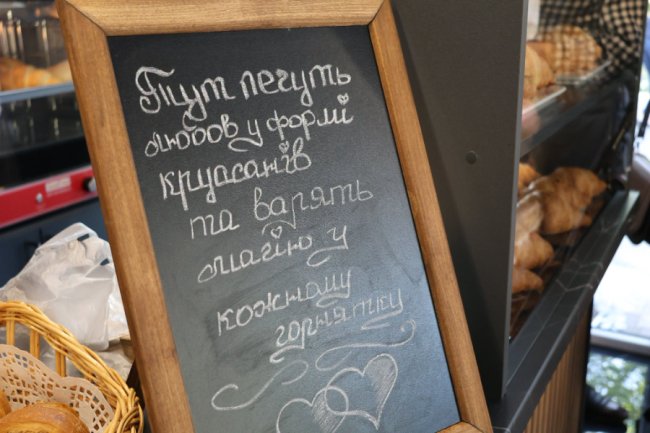 Тут печуть
любов у формі
круасанів
та варять
магію у
кожному
горнятку